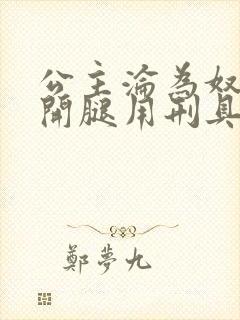 公主淪為奴
開腿用刑具
鄭夢九